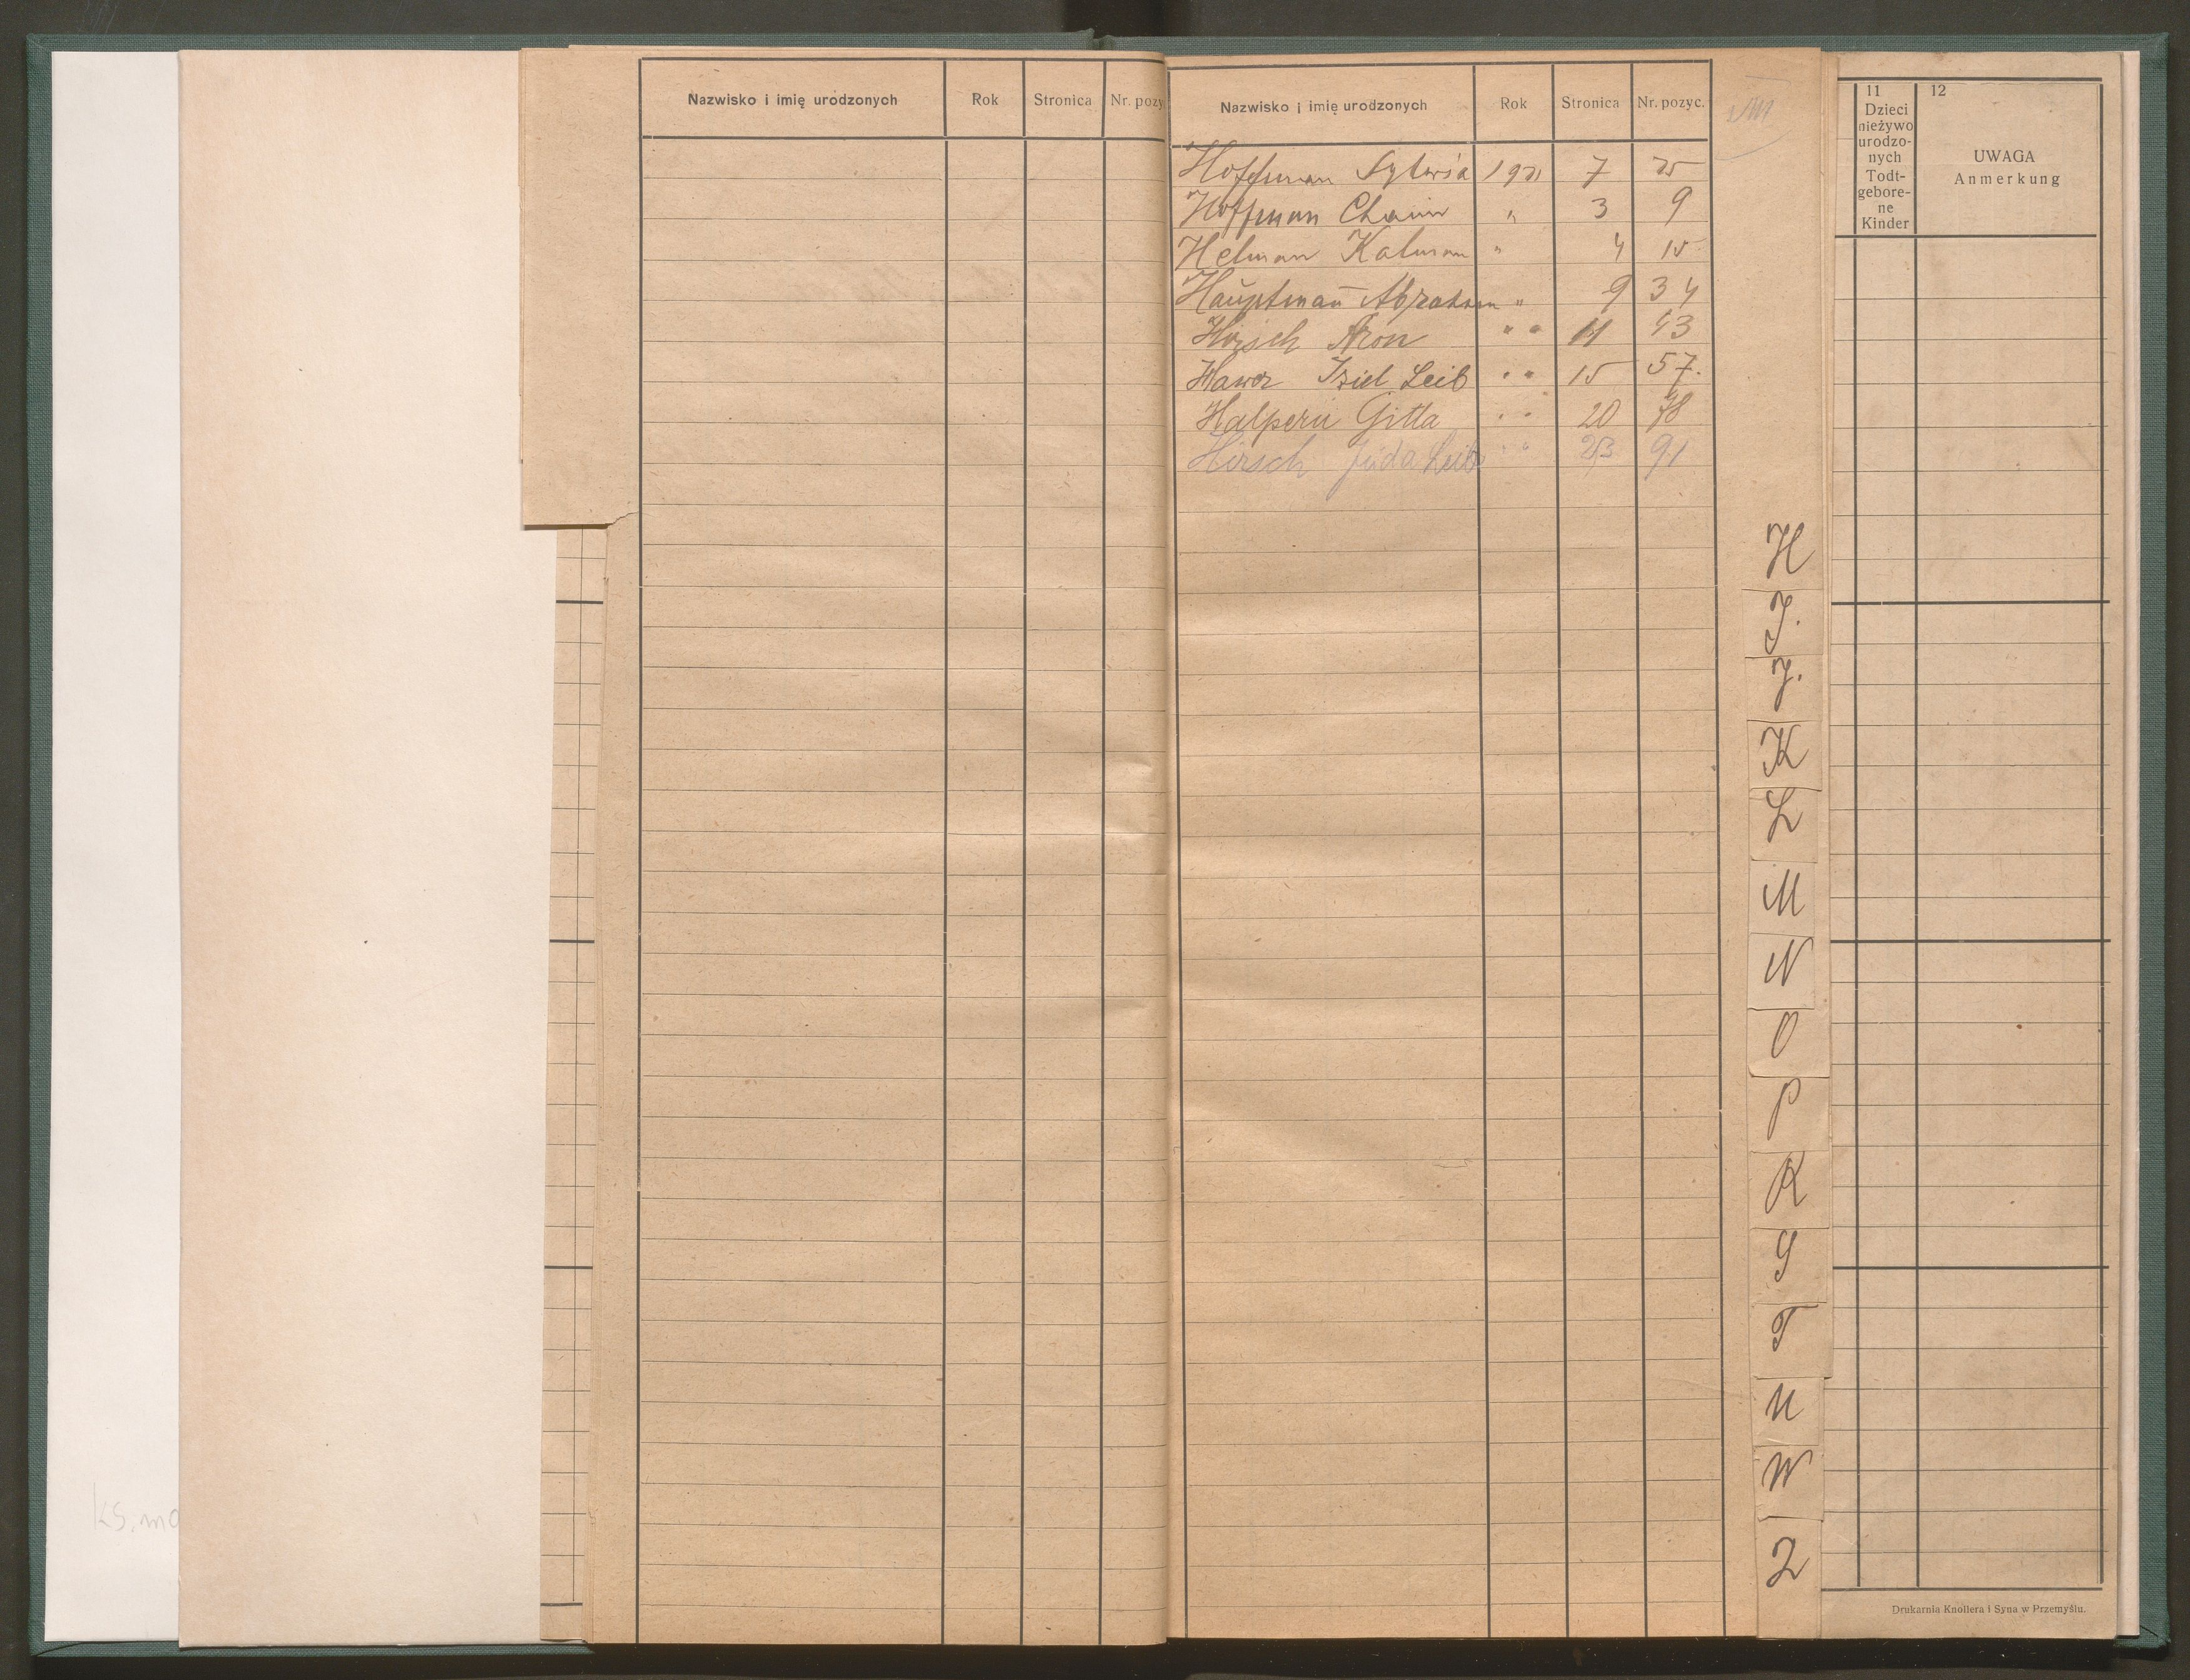 Nazwisko i imię urodzonych Rok Stronica Nr. pozy
Nazwisko i imię urodzonych Rok Stronica Nr. pozyc.
VIII
Hoffman Sylwia 1921 7 25
Hoffman Chaim " 3 9
Helman Kalman " 4 15
Hauptman Abraham " 9 34
Hirsch Aron " " 11 43
Hawer Iziel Leib " " 15 57.
Halpern Gitla " " 20 78
Hirsch Juda Leib " " 23 91
H
I.
J.
K
L
M
N
O
P
R
S
T
U
W
Z
11
Dzieci
nieżywo
urodzo-
nych
Todt-
gebore-
ne
Kinder
12
UWAGA
Anmerkung
Drukarnia Knollera i Syna w Przemyślu.
ks. mo